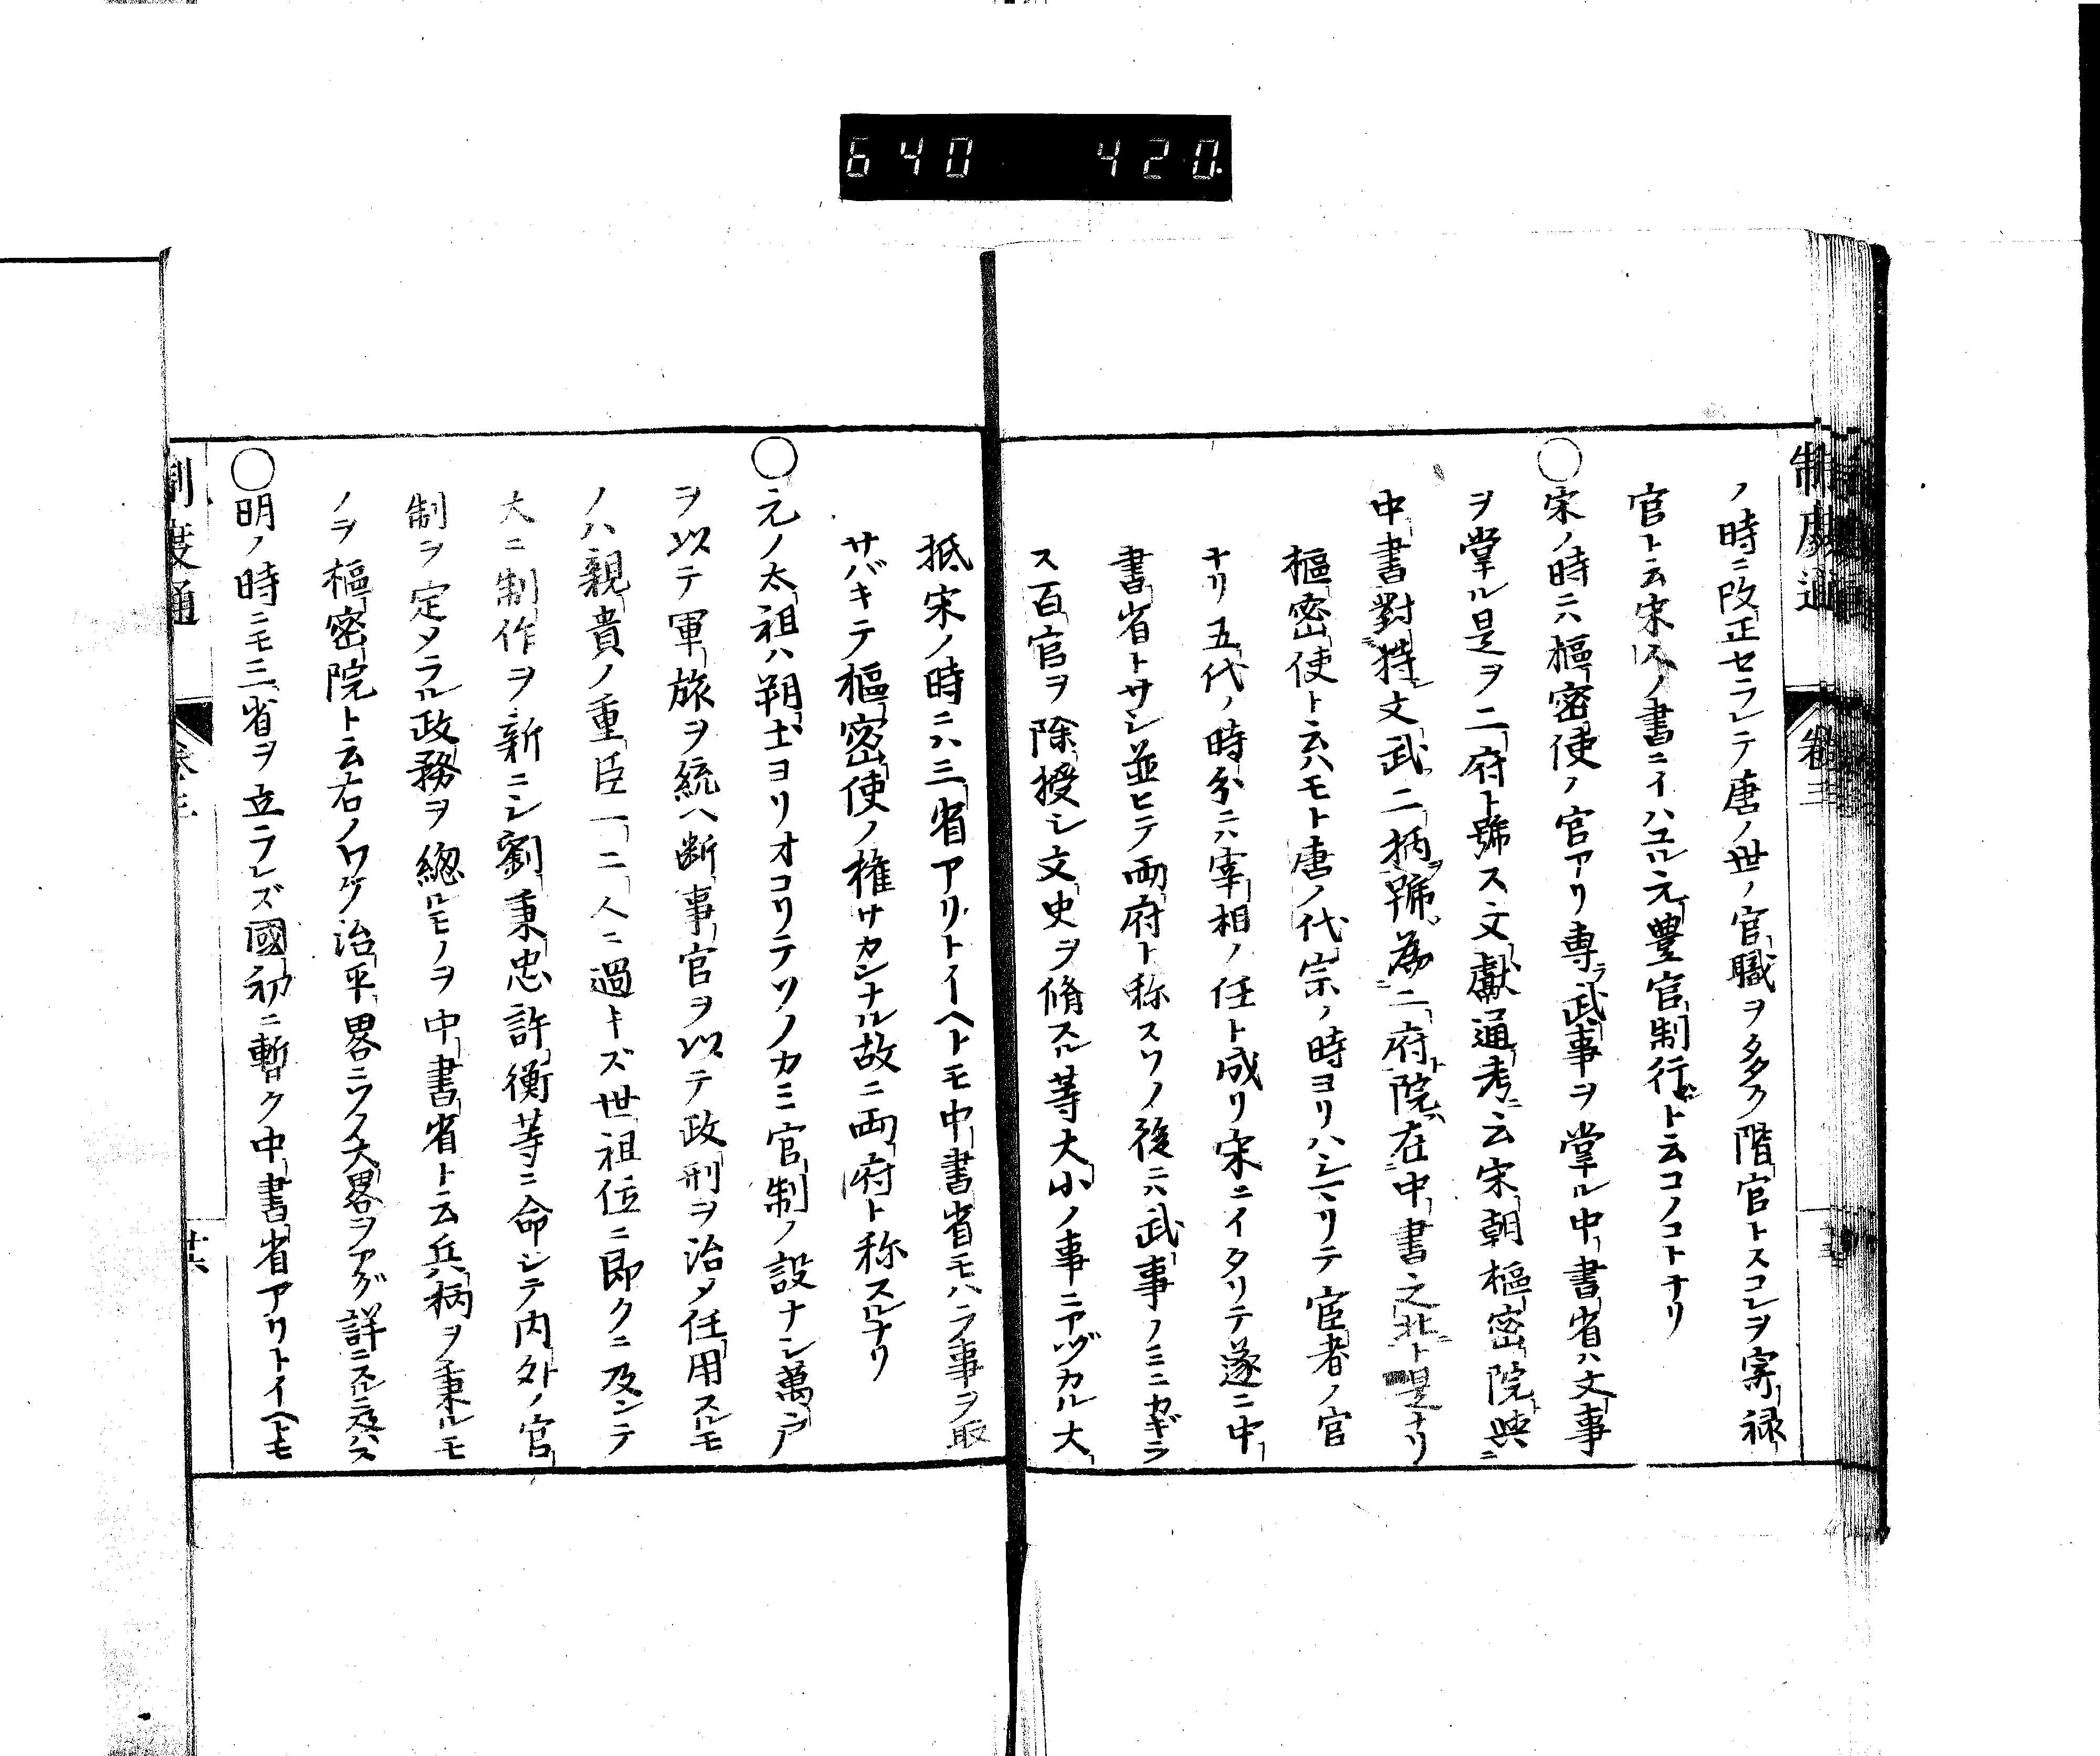 640 420.
制度通 卷三
ノ時ニ改正セラレテ唐ノ世ノ官職ヲ多ク階官トスコレヲ寄禄
官ト云宋人ノ書ニイハユル元豊官制行ト云コノコトナリ
○宋ノ時ニハ樞密使ノ官アリ専ラ武事ヲ掌ル中書省ハ文事
ヲ掌ル是ヲ二府ト號ス文獻通考ニ云宋朝樞密院與ニ
中書對持文武二柄號為二府院在中書之北ト是ナリ
樞密使ト云ハモト唐ノ代宗ノ時ヨリハシマリテ宦者ノ官
ナリ五代ノ時分ニハ宰相ノ任ト成リ宋ニイタリテ遂ニ中
書省トサシ並ヒテ両府ト称スソノ後ニハ武事ノミニカギラ
ス百官ヲ除授シ文史ヲ脩スル等大小ノ事ニアヅカル大
抵宋ノ時ニハ三省アリトイヘトモ中書省モハラ事ヲ取
サバキテ樞密使ノ権サカンナル故ニ両府ト称スルナリ
○元ノ太祖ハ朔土ヨリオコリテソノカミ官制ノ設ナシ萬戸
ヲ以テ軍旅ヲ統ヘ断事官ヲ以テ政刑ヲ治メ任用スルモ
ノハ親貴ノ重臣一二人ニ過キズ世祖位ニ即クニ及ンテ
大ニ制作ヲ新ニシ劉秉忠許衡等ニ命シテ内外ノ官
制ヲ定メラル政務ヲ總ルモノヲ中書省ト云兵柄ヲ秉ルモ
ノヲ樞密院ト云右ノワケ治平畧ニツイ大畧ヲアグ詳ニスルニ及ハス
○明ノ時ニモ三省ヲ立ラレズ國初ニ暫ク中書省アリトイヘトモ
制度通 卷三 廿六